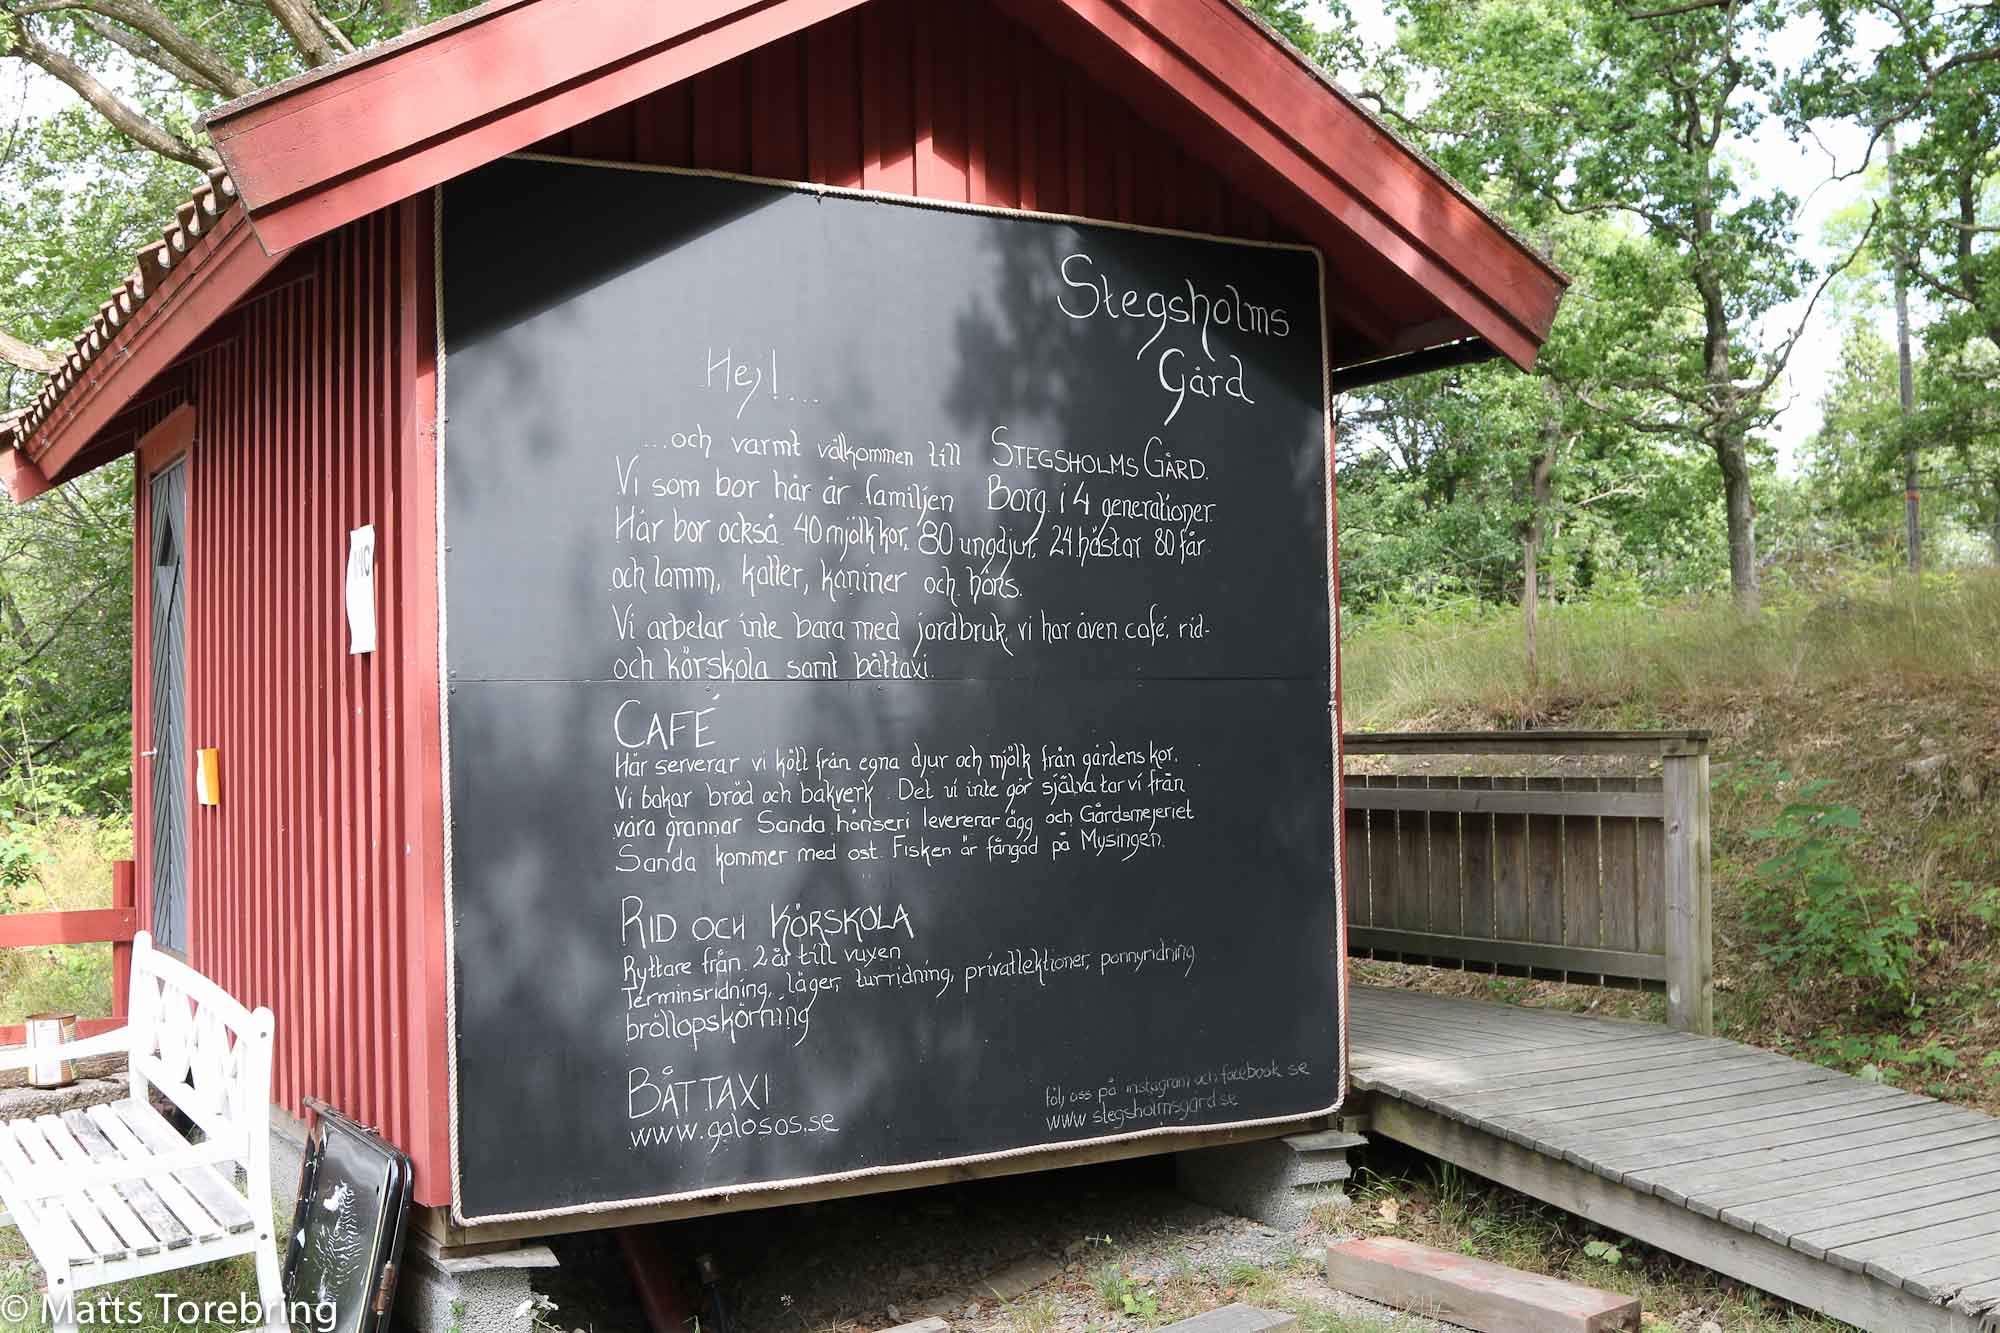 Stegsholms
Gård
Hej!...
...och varmt välkommen till STEGSHOLMS GÅRD.
Vi som bor här är familjen Borg i 4 generationer.
Här bor också 40 mjölkkor, 80 ungdjur, 24 hästar 80 får
och lamm, katter, kaniner och höns.
Vi arbetar inte bara med jordbruk, vi har även café, rid-
och körskola samt båttaxi.
CAFÉ
Här serverar vi kött från egna djur och mjölk från gårdens kor.
Vi bakar bröd och bakverk. Det vi inte gör själva tar vi från
våra grannar Sanda hönseri levererar ägg och Gårdsmejeriet
Sanda kommer med ost. Fisken är fångad på Mysingen.
RID OCH KÖRSKOLA
Ryttare från 2 år till vuxen
Terminsridning, läger, turridning, privatlektioner, ponnyridning
bröllopskörning
BÅTTAXI
www.galosos.se
följ oss på instagram och facebook se
www.stegsholmsgard.se
WC
© Matts Torebring